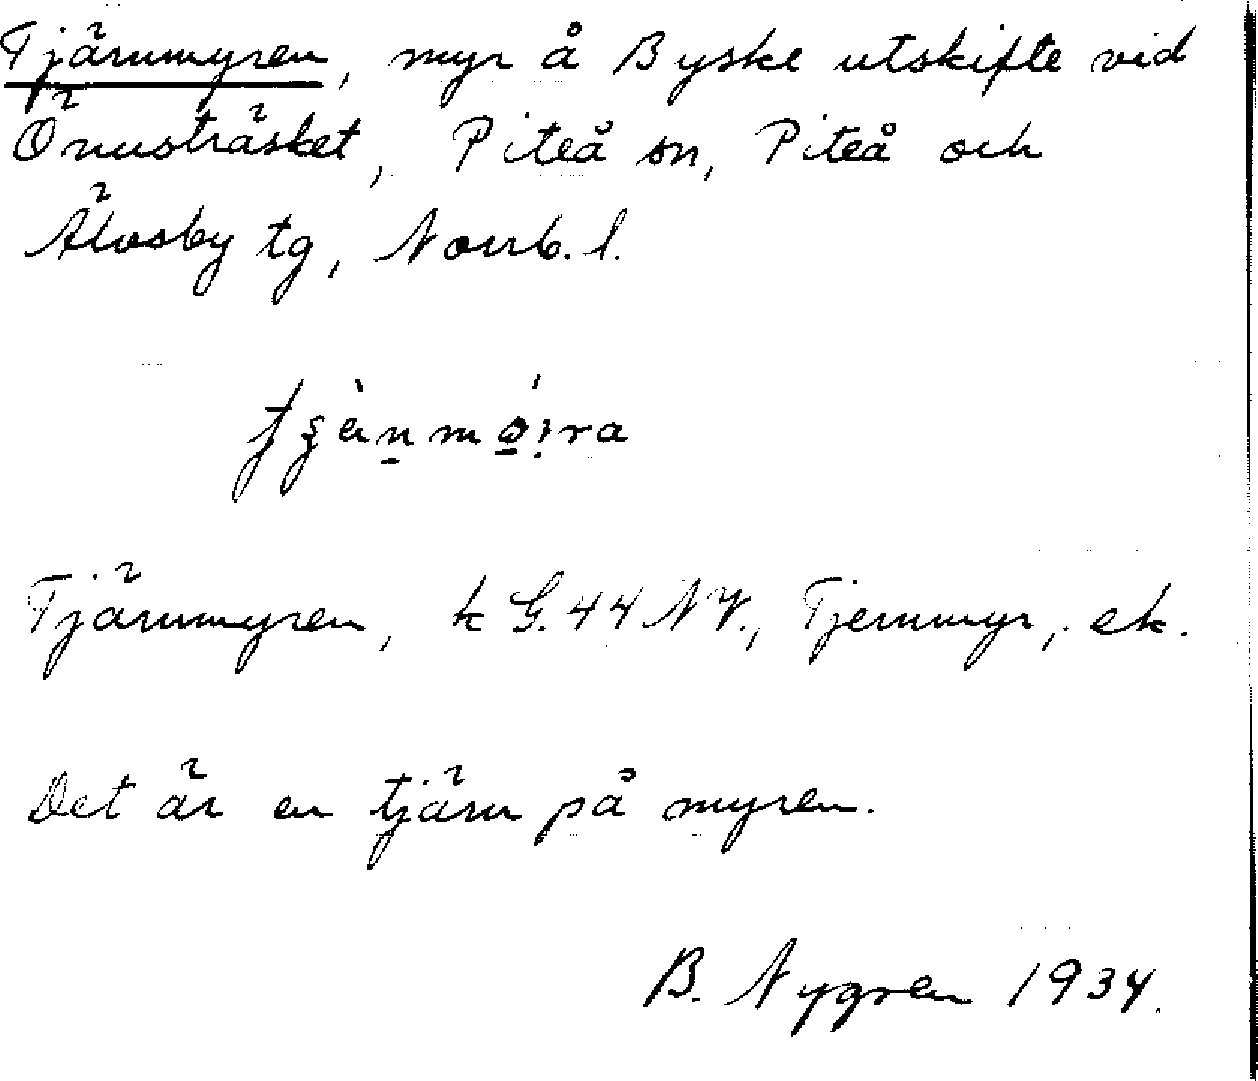 Tjärnmyren, myr å Byske utskifte vid
Önusträsket, Piteå sn, Piteå och
Älvsby tg, Norrb. l.
Tjärnmyren, k G. 44 NV., Tjernmyr, ek.
Det är en tjärn på myren.
B. Nygren 1934.